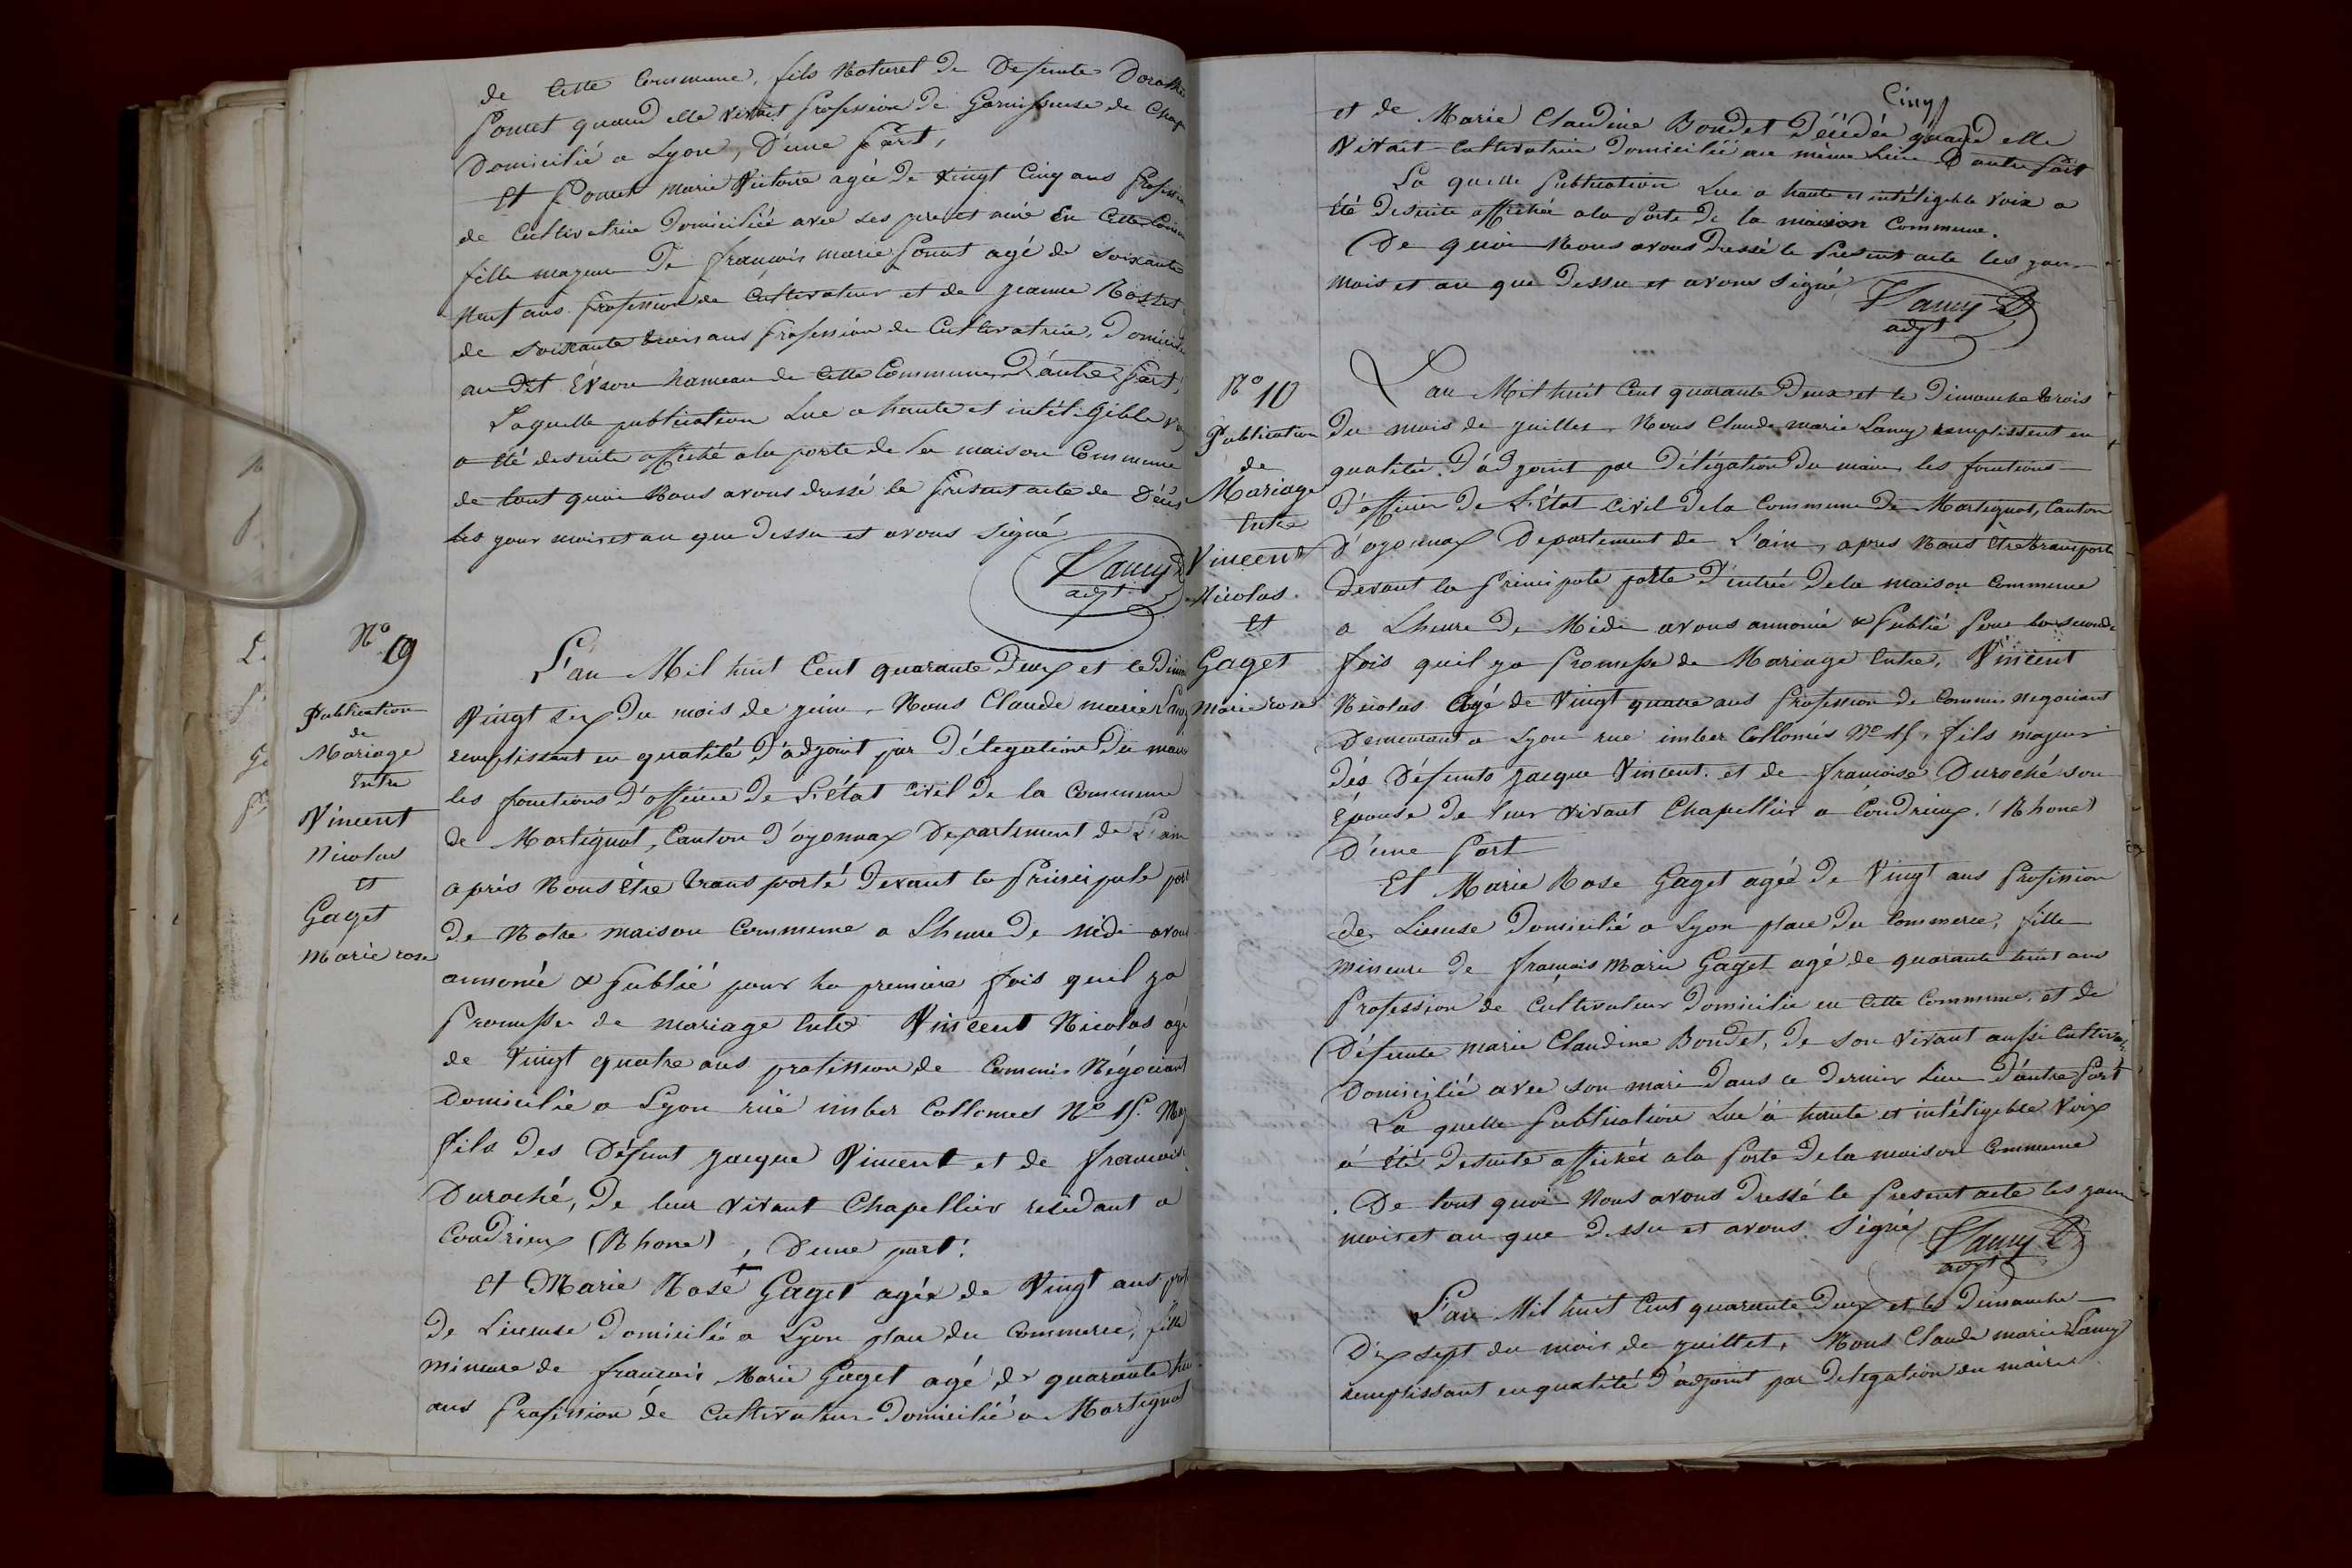 de Cette Commune, fils Naturel de Defunte
Poncet quand elle vivait Profession de Garnisseuse de
Domicilié a Lyon, D'une Part,
Et Poncet marie Victoire agée de vingt Cinq ans
de Cultivatrice Domiciliée avec ses pere et mere En Cette
fille majeure De francois marie Poncet agé de soixante
neuf ans Profession de Cultivateur et de jeanne
de soixante trois ans Profession de Cultivatrice,
au dit Evron hameau de Cette Commune D'autre Part,
Laquelle publication Lue a haute et intéligible
a été desuite affiché ala porte de la maison Commune
de tout quoi Nous avons dressé le Present acte de
les jour mois et an que Dessu et avons Signé
Lamy
adjt
N° 9
Publication
de
Mariage
Entre
Vincent
Nicolas
et
Gaget
Marie rose
L'an Mil huit Cent quarante Deux et le
Vingt six Du mois de juin, Nous Claude marie Lamy
remplissant en qualité D'adjoint par Délegation Du maire
les fonctions D'officier De L'état Civil De la Commune
de Martignat, Canton D'oyonnax Departement de L'ain
aprés Nous Etre transporté Devant la Principale
De Notre maison Commune a Lheure De midi avons
annoncé & Publié pour la premiere fois quil ya
Promesse de mariage Entre Vincent Nicolas agé
de Vingt quatre ans profession de Commis Négociant
Domicilié a Lyon rue imber Collomes N° 15.
fils des Défunt jacque Vincent et de francoise
Duroché, De leur vivant Chapellier residant a
Condrieux (Rhone), Dune part.
Et Marie Rose Gaget agée de Vingt ans
De Liseuse Domiciliée a Lyon place du Commerce, fille
mineure de francois Marie Gaget agé de quarante
ans Profession de Cultivateur Domicilié a Martignat
Cinq
et de Marie Claudine Bondet Décédée quand elle
Vivait Cultivatrice Domiciliée au même Lieu D'autre Part
La quelle Publication Lue a haute et intéligible voix a
été Desuite affichée ala Porte De la maison Commune.
De quoi Nous avons Dressé le Present acte les jour
mois et an que Dessu et avons signé
Lamy
adjt
N° 10
Publication
de
Mariage
Entre
Vincent
Nicolas
Et
Gaget
Marie rose
L'an Mil huit Cent quarante Deux et le Dimanche trois
Du mois de juillet, Nous Claude marie Lamy remplissent en
qualitée D'adjoint par Délégation Du maire les fonctions
D'officier De L'État Civil Dela Commune De Martignat, Canton
D'oyonnax Departement de L'ain, apres Nous Être transporté
Devant la Principale porte D'entrée Dela maison Commune
a Lheure De Midi avons annoncé & Publié Pour la seconde
fois quil ya Promesse De Mariage Entre, Vincent
Nicolas agé de Vingt quatre ans Profession de Commis negociant
Demeurant a Lyon rue imber Collomés N° 15, fils majeur
dés Défunts jacque Vincent et de francoise Duroché son
Épouse De leur vivant Chapellier a Condrieux (Rhone)
D'une Part
Et Marie Rose Gaget agée De Vingt ans Profession
de Liseuse Domicilié a Lyon place Du Commerce, fille
mineure De francois Marie Gaget agé de quarante huit ans
Profession de Cultivateur Domicilié en Cette Commune, et de
Défunte marie Claudine Bondet, De son vivant aussi
Domicilié avec son mari Dans ce Dernier Lieu D'autre Part
La quelle Publication Lue a haute et intéligible Voix
a Été Desuite affichée ala Porte Dela maison Commune
De tout quoi Nous avons Dressé le Present acte les jour
mois et an que Dessu et avons Signé
Lamy
adjt
L'an Mil huit Cent quarante Deux et le Dimanche
Dix sept du mois de juillet, Nous Claude marie Lamy
remplissant en qualité D'adjoint par Delegation du maire